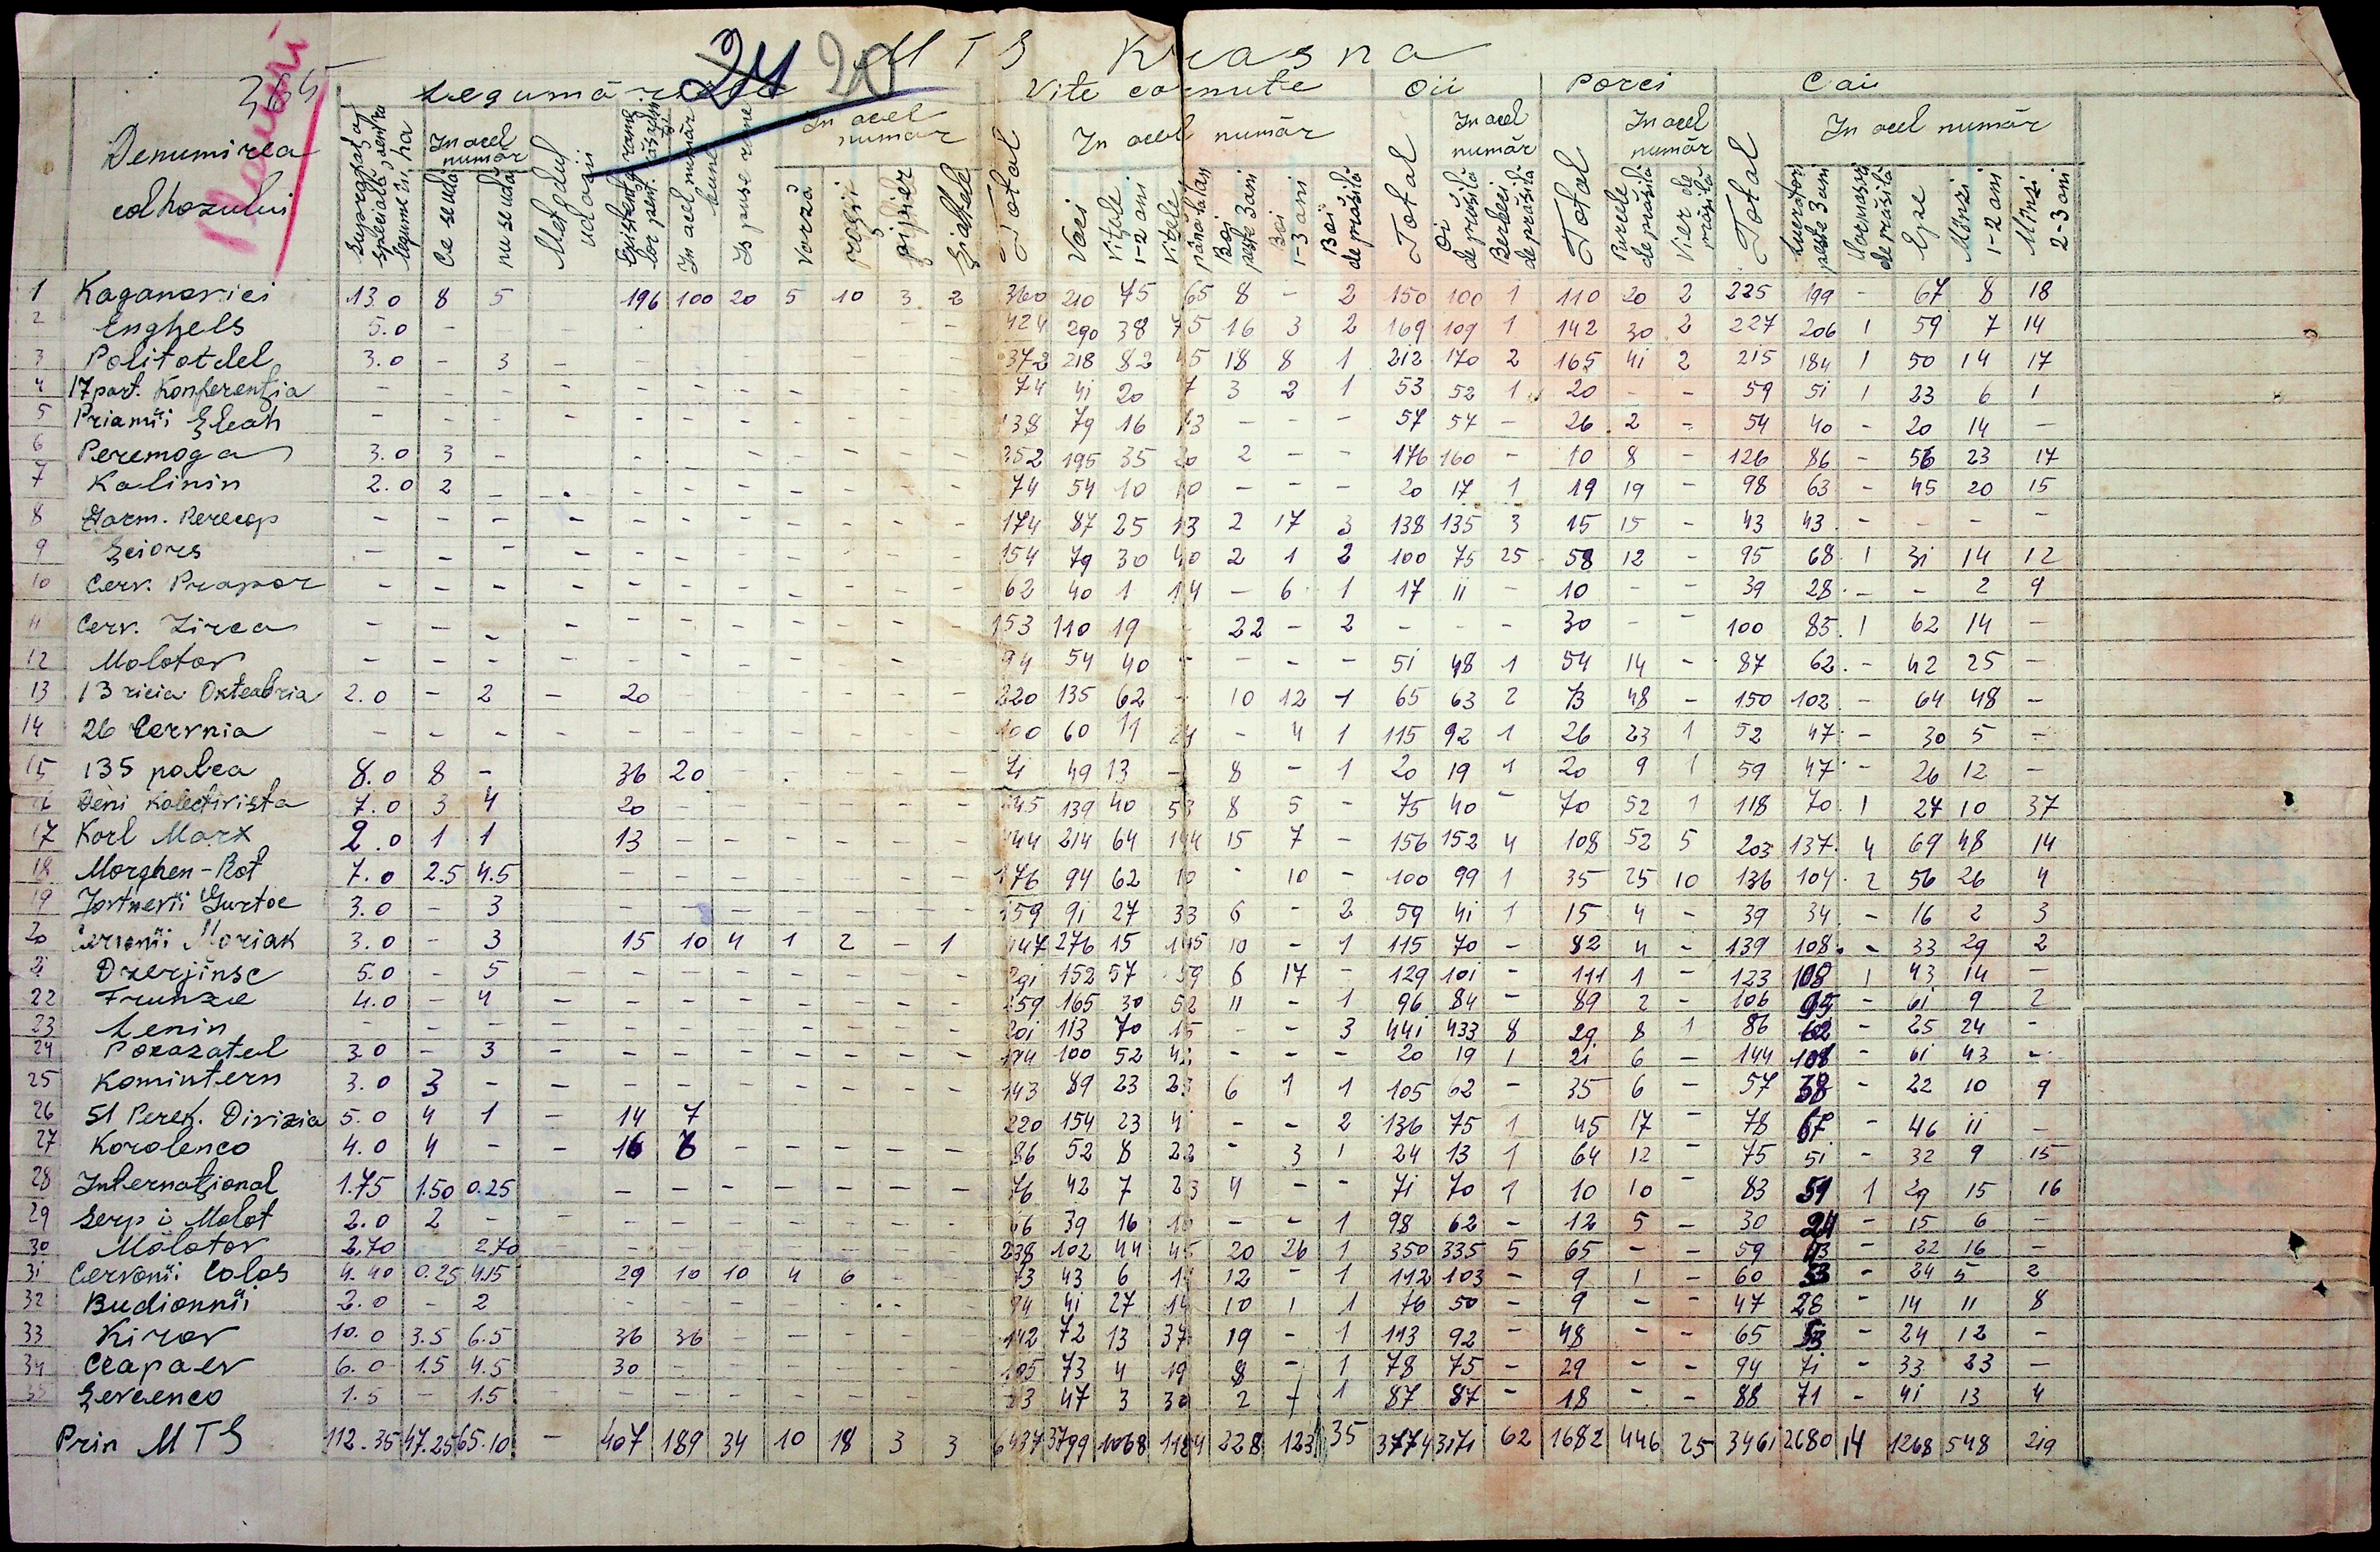 24 20 MTS Krasna
Vite cornute Oii Porci Cai
Denumirea colhozului
In acel număr In acel număr In acel număr In acel număr In acel număr In acel număr
Ce se udă nu se udă Metodul udării Is puse rame varză roșii Total Vaci Vițele 1-2 ani Boi peste 3 ani Boi 1-3 ani Boi de prăsilă Total Oi de prăsilă Berbeci de prăsilă Total Purcele de prăsilă Vier de prăsilă Total Epe Mînzi 1-2 ani Mînzi 2-3 ani
1 Kaganovici 13.0 8 5 196 100 20 5 10 3 2 360 210 75 65 8 - 2 150 100 1 110 20 2 225 199 - 67 8 18
2 Enghels 5.0 - - - 424 290 38 75 16 3 2 169 109 1 142 30 2 227 206 1 59 7 14
3 Politotdel 3.0 - 3 - 372 218 82 45 18 8 1 212 170 2 165 4i 2 215 184 1 50 14 17
4 17 part. Konferenția - - - - - - - - - 74 4i 20 7 3 2 1 53 52 1 20 - - 59 5i 1 23 6 1
5 - - - - - - - - - 138 79 16 13 - - - 57 57 - 26 2 - 54 40 - 20 14 -
6 Peremoga 3.0 3 - - - - - - - 252 195 35 20 2 - - 176 160 - 10 8 - 126 86 - 56 23 17
7 Kalinin 2.0 2 - - - - - - - - 74 54 10 10 - - - 20 17 1 19 19 - 98 63 - 45 20 15
8 - - - - - - - - - - - 174 87 25 13 2 17 3 138 135 3 15 15 - 43 43 - - - -
9 Șciors - - - - - - - - - - - 154 79 30 40 2 1 2 100 75 25 58 12 - 95 68 1 3i 14 12
10 Cerv. Prapor - - - - - - - - - - - 62 40 1 14 - 6 1 17 ii - 10 - - 39 28 - - 2 9
11 Cerv. Zirca - - - - - - - - - - - 153 110 19 - 22 - 2 - - - 30 - - 100 85 1 62 14 -
12 Molotov - - - - - - - - - 94 54 40 - - - - 5i 48 1 54 14 - 87 62 - 42 25 -
13 13 ricia Okteabria 2.0 - 2 - 20 - - - - 220 135 62 - 10 12 1 65 63 2 73 48 - 150 102 - 64 48 -
14 26 Cervnia - - - - - - - - - - - 100 60 11 24 - 4 1 115 92 1 26 23 1 52 47 - 30 5 -
15 135 polca 8.0 8 - 36 20 - - - - - 7i 49 13 - 8 - 1 20 19 1 20 9 1 59 47 - 26 12 -
16 Kolectivista 7.0 3 4 20 - - - - - 245 139 40 53 8 5 - 75 40 - 70 52 1 118 70 1 27 10 37
17 Korl Marx 2.0 1 1 13 - - - - - - 444 214 64 144 15 7 - 156 152 4 108 52 5 203 137 4 69 48 14
18 Morghen-Rot 7.0 2.5 4.5 - - - - - - - 176 94 62 10 - 10 - 100 99 1 35 25 10 136 104 2 56 26 4
19 3.0 - 3 - - - - - - - 159 9i 27 33 6 - 2 59 4i 1 15 4 - 39 34 - 16 2 3
20 Cervonîi Moriak 3.0 - 3 15 10 4 1 2 - 1 447 276 15 145 10 - 1 115 70 - 82 4 - 139 108 - 33 29 2
2i Dzerjinsc 5.0 - 5 - - - - - - - - 29i 152 57 59 6 17 - 129 10i - 111 1 - 123 108 1 43 14 -
22 Frunze 4.0 - 4 - - - - - - - - 259 165 30 52 11 - 1 96 84 - 89 2 - 106 95 - 6i 9 2
23 Lenin - - - - - - - - - 20i 113 70 15 - - 3 44i 433 8 29 8 1 86 62 - 25 24 -
24 Pokazatel 3.0 - 3 - - - - - - - - 194 100 52 42 - - - 20 19 1 2i 6 - 144 108 - 6i 43 -
25 Komintern 3.0 3 - - - - - - - - - 143 89 23 23 6 1 1 105 62 - 35 6 - 57 38 - 22 10 9
26 51 Perek. Divizia 5.0 4 1 - 14 7 220 154 23 4i - - 2 136 75 1 45 17 - 78 67 - 46 ii -
27 Korolenco 4.0 4 - - 16 - - - - - 86 52 8 22 - 3 1 24 13 1 64 12 - 75 5i - 32 9 15
28 Internațional 1.75 1.50 0.25 - - - - - - - 76 42 7 23 4 - - 7i 70 1 10 10 - 83 59 1 29 15 16
29 Serp i Molot 2.0 2 - - - - - - - - - 66 39 16 10 - - 1 98 62 - 12 5 - 30 24 - 15 6 -
30 Molotov 2.70 2.70 - - - - - - 238 102 44 45 20 26 1 350 335 5 65 - - 59 43 - 22 16 -
3i Cervonîi Colos 4.40 0.25 4.15 29 10 10 4 6 - 73 43 6 12 - 1 112 103 - 9 1 - 60 53 - 24 5 2
32 Budionnîi 2.0 - 2 - - - - - - 94 4i 27 14 10 1 1 76 50 - 9 - - 47 28 - 14 11 8
33 Kirov 10.0 3.5 6.5 36 36 - - - - 142 72 13 37 19 - 1 113 92 - 48 - - 65 53 - 24 12 -
34 Ceapaev 6.0 1.5 4.5 30 - - - - - 105 73 4 19 8 - 1 78 75 - 29 - - 94 7i - 33 23 -
35 Șevcenco 1.5 - 1.5 - - - - - - 83 47 3 30 2 1 87 87 - 18 - - 88 71 - 4i 13 4
Prin MTS 112.35 47.25 65.10 - 407 189 34 10 18 3 3 6437 3799 1068 1184 228 123 35 3774 317i 62 1682 446 25 346i 2680 14 1268 548 219